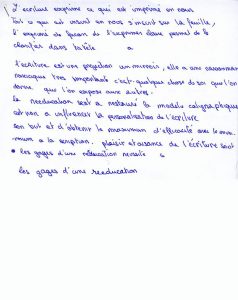 L'écriture exprime ce qui est imprimé en nous
Tout ce qui est inscrit en nous s'inscrit sur la feuille,
l'exprimé de façon de l'exprimer donne permet de le
clarifier dans la tête
L'écriture est une projection un miroir, elle a une consonance
narcissique très importante c'est quelque chose de soi que l'on
donne que l'on expose aux autres.
la rééducation sert à restaurer la modèle calligraphique
et non à influencer la personnalisation de l'écriture
son but est d'obtenir le maximum d'efficacité avec le mini-
mum à la scription. plaisir et aisance de l'écriture sont
les gages d'une rééducation réussite
les gages d'une reeducation